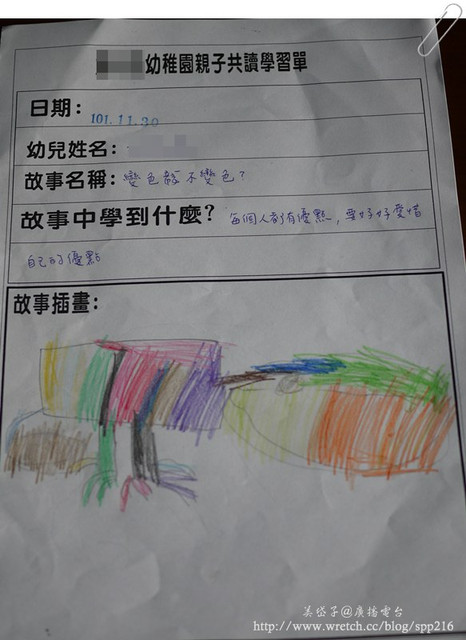 幼稚園親子共讀學習單
日期: 101.11.30
幼兒姓名:
故事名稱: 變色龍不變色?
故事中學到什麼? 每個人都有優點,要好好愛惜
自己的優點
故事插畫:
美岱子@廣播電台
http://www.wretch.cc/blog/spp216